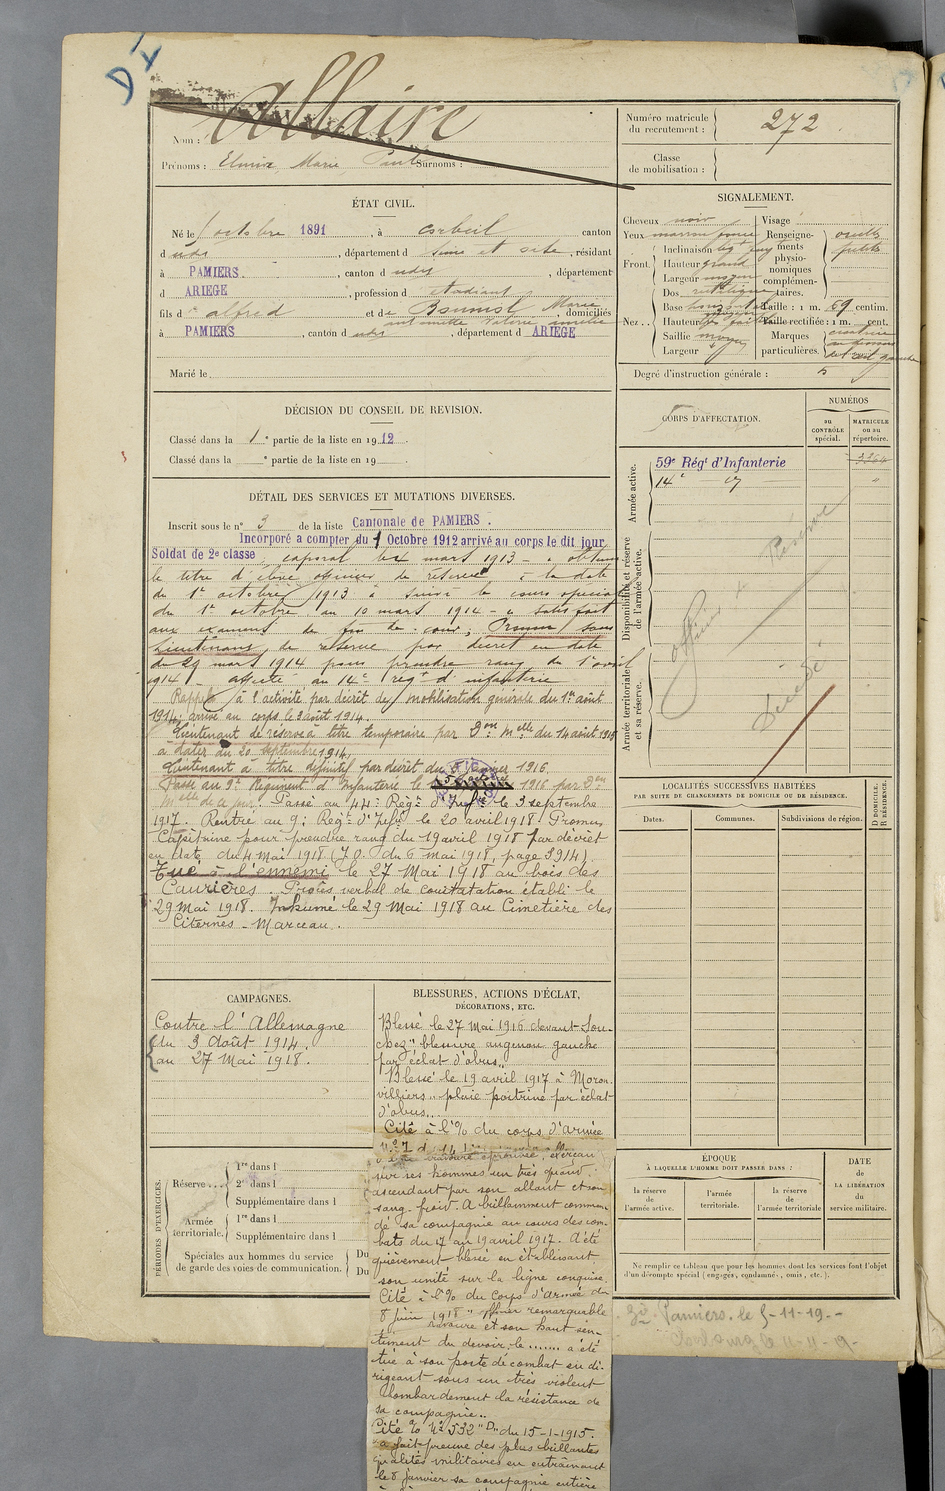 Allaire
Nom :
Prénoms : Marie Surnoms :
Numéro matricule
du recrutement : 272
Classe
de mobilisation :
ÉTAT CIVIL.
Né le octobre 1891, à Corbeil canton
d udt, département d Seine et Oise, résidant
à PAMIERS., canton d udt, département
d ARIEGE, profession d étudiant
fils d' alfred et de Marie domiciliés
antoinette Valérie amélie
à PAMIERS, canton d udt, département d ARIEGE
Marié le
SIGNALEMENT.
Cheveux noir Visage
Yeux
Front. Inclinaison
Hauteur grand
Largeur moyen
Nez. . Dos rectiligne
Base
Hauteur
Saillie moyen
Largeur
Renseigne-
ments
physio-
nomiques
complémen-
taires.
oreille
petite
Taille : 1 m. 69 centim.
Taille rectifiée : 1 m. cent.
Marques
particulières.
cicatrice
au dessous
de l'œil gauche
Degré d'instruction générale : 5
DÉCISION DU CONSEIL DE REVISION.
Classé dans la 1e partie de la liste en 1912.
Classé dans la e partie de la liste en 19
DÉTAIL DES SERVICES ET MUTATIONS DIVERSES.
Inscrit sous le n° 3 de la liste Cantonale de PAMIERS.
Incorporé a compter du 1 Octobre 1912 arrivé au corps le dit jour.
Soldat de 2e classe, caporal mars 1913 - obtenu
le titre d'élève officier de réserve à la date
du 1er octobre 1913 a suivi le cours spécial
du 1er octobre au 10 mars 1914 - a satisfait
aux examens de fin de cours; Promu sous
lieutenant de réserve par décret en date
du 29 mars 1914 pour prendre rang du 1er avril
1914 - affecté au 14e régt d'infanterie
Rappelé à l'activité par décret de mobilisation générale du 1er août
1914; arrivé au corps le 3 août 1914.
Lieutenant de réserve à titre temporaire par Don Mlle du 14 août 1915
à dater du 20 septembre 1914.
Lieutenant à titre définitif par décret du janvier 1916
Passé au 9e Régiment d'Infanterie le 1916 par Don
Mlle de ce jour. Passé au 44e Régt d'Infie le 3 septembre
1917. Rentré au 9e Régt d'Infie le 20 avril 1918. Promu
Capitaine pour prendre rang du 19 avril 1918 par décret
en date du 4 mai 1918 (J.O. du 6 mai 1918, page 3914).
Tué à l'ennemi le 27 Mai 1918 au bois des
Caurières. Procès verbal de constatation établi le
29 mai 1918. Inhumé le 29 Mai 1918 au Cimetière des
Citernes - Marceau.
CORPS D'AFFECTATION.
NUMÉROS
au
CONTRÔLE
spécial.
MATRICULE
ou au
répertoire.
Armée active.
59e Régt d'Infanterie 3264
14e
Disponibilité et réserve
de l'armée active.
Armée territoriale
et sa réserve.
Officier de Réserve
Décédé
LOCALITÉS SUCCESSIVES HABITÉES
PAR SUITE DE CHANGEMENTS DE DOMICILE OU DE RÉSIDENCE.
Dates.
Communes.
Subdivisions de région.
D DOMICILE.
R RÉSIDENCE.
CAMPAGNES.
Contre l'Allemagne
du 3 Août 1914.
au 27 Mai 1918.
BLESSURES, ACTIONS D'ÉCLAT,
DÉCORATIONS, ETC.
Blessé le 27 Mai 1916 devant Sou-
chez "blessure au genou gauche
par éclat d'obus".
Blessé le 19 avril 1917 à Moron-
villiers "plaie poitrine par éclat
d'obus".
Cité à l'% du corps d'armée
bravoure éprouvée, exerçant
sur ses hommes un très grand
ascendant par son allant et son
sang-froid. A brillamment comman-
dé sa compagnie au cours des com-
bats du 17 au 19 avril 1917. A été
grièvement blessé en établissant
son unité sur la ligne conquise.
Cité à l'% du Corps d'armée du
8 juin 1918 "officier remarquable
bravoure et son haut sen-
timent du devoir, le ....... a été
tué à son poste de combat en di-
rigeant sous un très violent
bombardement la résistance de
sa compagnie".
Cité % N° 532 "D" du 15-1-1915.
"a fait preuve des plus brillantes
qualités militaires en entraînant
le 8 janvier sa compagnie entière
PÉRIODES D'EXERCICES.
Réserve...
1re dans l
2e dans l
Supplémentaire dans l
Armée
territoriale.
1re dans l
Supplémentaire dans l
Spéciales aux hommes du service
de garde des voies de communication.
Du
Du
ÉPOQUE
À LAQUELLE L'HOMME DOIT PASSER DANS :
la réserve
de l'armée active.
l'armée
territoriale.
la réserve
de l'armée territoriale
DATE
de
LA LIBÉRATION
du
service militaire.
Ne remplir ce tableau que pour les hommes dont les services font l'objet
d'un décompte spécial (engagés, condamnés, omis, etc.).
Pamiers. le 5-11-19.-